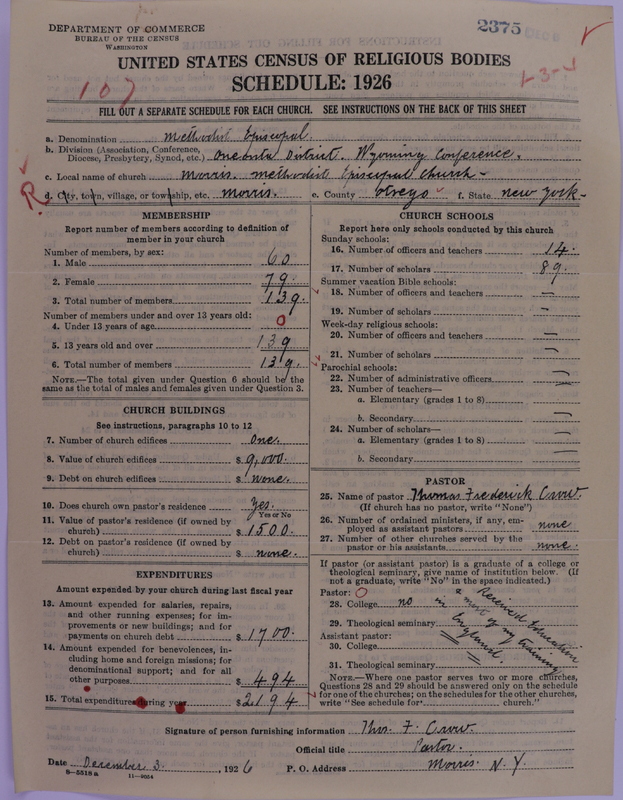 DEPARTMENT OF COMMERCE
BUREAU OF THE CENSUS
WASHINGTON
2375
UNITED STATES CENSUS OF RELIGIOUS BODIES
SCHEDULE: 1926
107
FILL OUT A SEPARATE SCHEDULE FOR EACH CHURCH. SEE INSTRUCTIONS ON THE BACK OF THIS SHEET
a. Denomination Methodist Episcopal.
b. Division (Association, Conference, Diocese, Presbytery, Synod, etc.) Oneonta District. Wyoming Conference.
c. Local name of church Morris. Methodist Episcopal Church-
R. d. City, town, village, or township, etc. Morris. e. County Otsego f. State New York-
MEMBERSHIP
Report number of members according to definition of
member in your church
Number of members, by sex:
1. Male 60
2. Female 79.
3. Total number of members 139.
Number of members under and over 13 years old:
4. Under 13 years of age 0
5. 13 years old and over 139
6. Total number of members 139.
NOTE.—The total given under Question 6 should be the
same as the total of males and females given under Question 3.
CHURCH BUILDINGS
See instructions, paragraphs 10 to 12
7. Number of church edifices one.
8. Value of church edifices $ 9,000.
9. Debt on church edifices $ none.
10. Does church own pastor's residence Yes.
Yes or No
11. Value of pastor's residence (if owned by
church) $ 1500.
12. Debt on pastor's residence (if owned by
church) $ none.
EXPENDITURES
Amount expended by your church during last fiscal year
13. Amount expended for salaries, repairs,
and other running expenses; for im-
provements or new buildings; and for
payments on church debt $ 1700.
14. Amount expended for benevolences, in-
cluding home and foreign missions; for
denominational support; and for all
other purposes $ 494
15. Total expenditures during year $ 2194
CHURCH SCHOOLS
Report here only schools conducted by this church
Sunday schools:
16. Number of officers and teachers 14.
17. Number of scholars 89.
Summer vacation Bible schools:
18. Number of officers and teachers —
19. Number of scholars —
Week-day religious schools:
20. Number of officers and teachers —
21. Number of scholars —
Parochial schools:
22. Number of administrative officers —
23. Number of teachers—
a. Elementary (grades 1 to 8) —
b. Secondary —
24. Number of scholars—
a. Elementary (grades 1 to 8) —
b. Secondary —
PASTOR
25. Name of pastor Thomas Frederick Crow.
(If church has no pastor, write "None")
26. Number of ordained ministers, if any, em-
ployed as assistant pastors none
27. Number of other churches served by the
pastor or his assistants none.
If pastor (or assistant pastor) is a graduate of a college or
theological seminary, give name of institution below. (If
not a graduate, write "No" in the space indicated.)
Pastor: O
28. College no
29. Theological seminary
Assistant pastor:
30. College
31. Theological seminary
Received Education
& most of my training
in England.
NOTE.—Where one pastor serves two or more churches,
Questions 28 and 29 should be answered only on the schedule
for one of the churches; on the schedules for the other churches,
write "See schedule for church."
Signature of person furnishing information Thos. F. Crow.
Official title Pastor.
Date December 3. , 1926 P. O. Address Morris N. Y.
8—5518a 11—9054